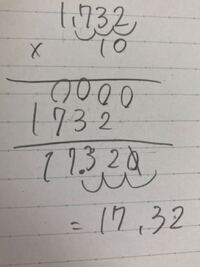 1.732
× 10
0000
1732
17.320
= 17.32